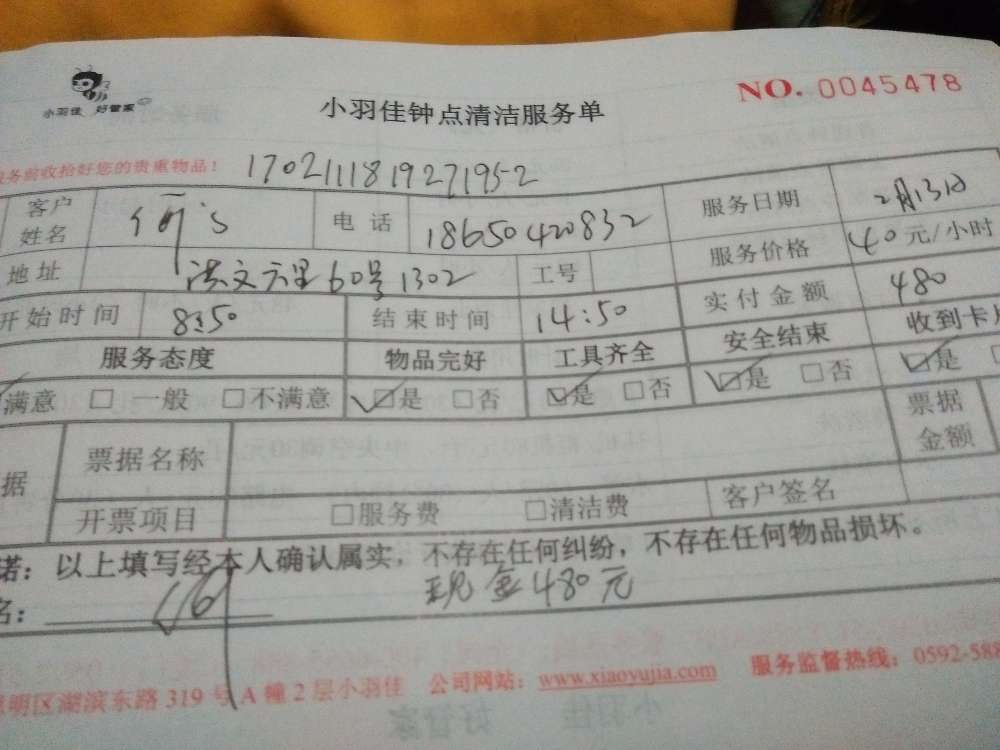 小羽佳 好管家
小羽佳钟点清洁服务单
NO. 0045478
服务前收拾好您的贵重物品！ 1702111819271952
客户姓名 电话 18650420832 服务日期 2月13日
地址 洪文六里60号1302 工号 服务价格 40元/小时
开始时间 8:50 结束时间 14:50 实付金额 480
服务态度 物品完好 工具齐全 安全结束 收到卡片
满意 □一般 □不满意 ☑是 □否 ☑是 □否 ☑是 □否 ☑是
据 票据名称 票据金额
开票项目 □服务费 □清洁费 客户签名
诺：以上填写经本人确认属实，不存在任何纠纷，不存在任何物品损坏。
名： 现金480元
明区湖滨东路319号A幢2层小羽佳 公司网站：www.xiaoyujia.com 服务监督热线：0592-588